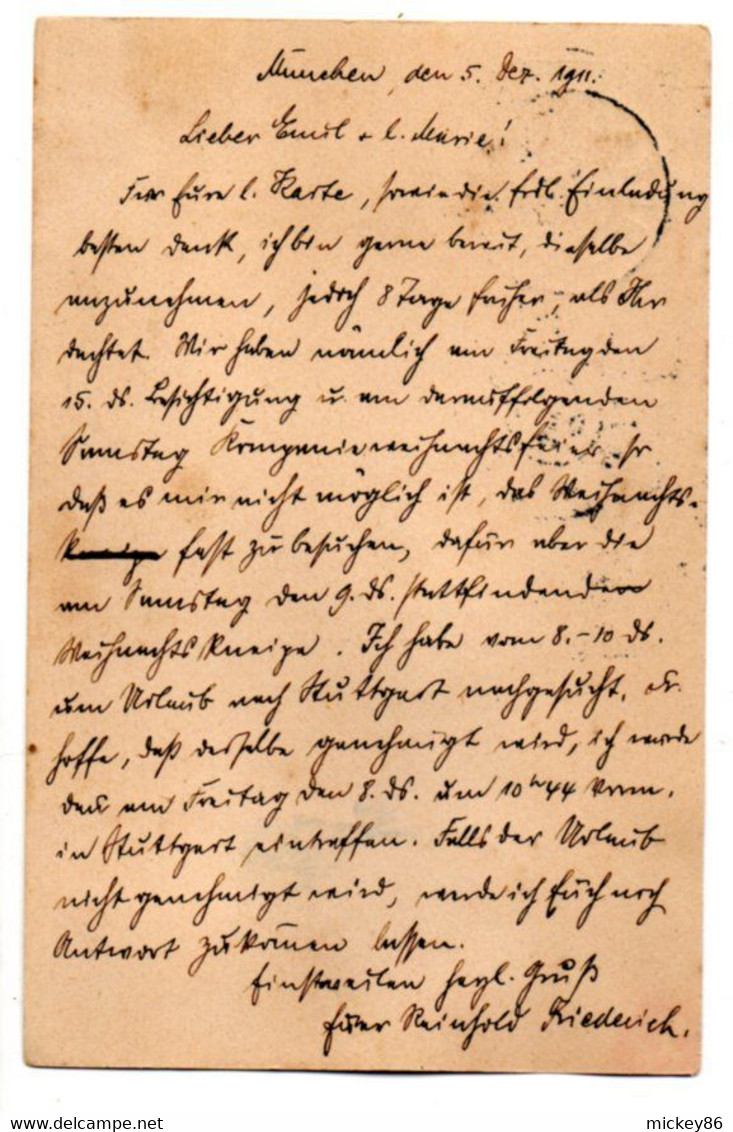 München, den 5. Dez. 1911.
Lieber Emil + l. Marie!
Für Eure l. Karte, sowie die frdl. Einladung
besten Dank, ich bin gerne bereit, dieselbe
anzunehmen, jedoch 8 Tage früher, als Ihr
dachtet. Wir haben nämlich am Freitag den
15. ds. Besichtigung u. am darauffolgenden
Samstag Kompanieweihnachtsfeier so
daß es mir nicht möglich ist, das Weihnachts-
fest zu besuchen, dafür aber die
am Samstag den 9. ds. stattfindenden
Weihnachtskneipe. Ich habe vom 8.-10 ds.
um Urlaub nach Stuttgart nachgesucht, u.
hoffe, daß derselbe genehmigt wird, ich werde
dann am Freitag den 8. ds. um 10 44 Vorm.
in Stuttgart eintreffen. Falls der Urlaub
nicht genehmigt wird, werde ich Euch noch
Antwort zukommen lassen.
Einstweilen herzl. Gruß
Euer Reinhold Friederich.
delcampe.net
mickey86